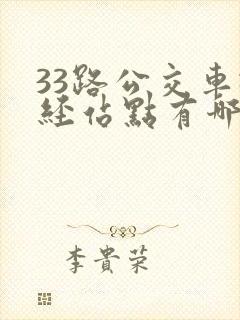 33路公交車
经佔點有哪
李貴荣